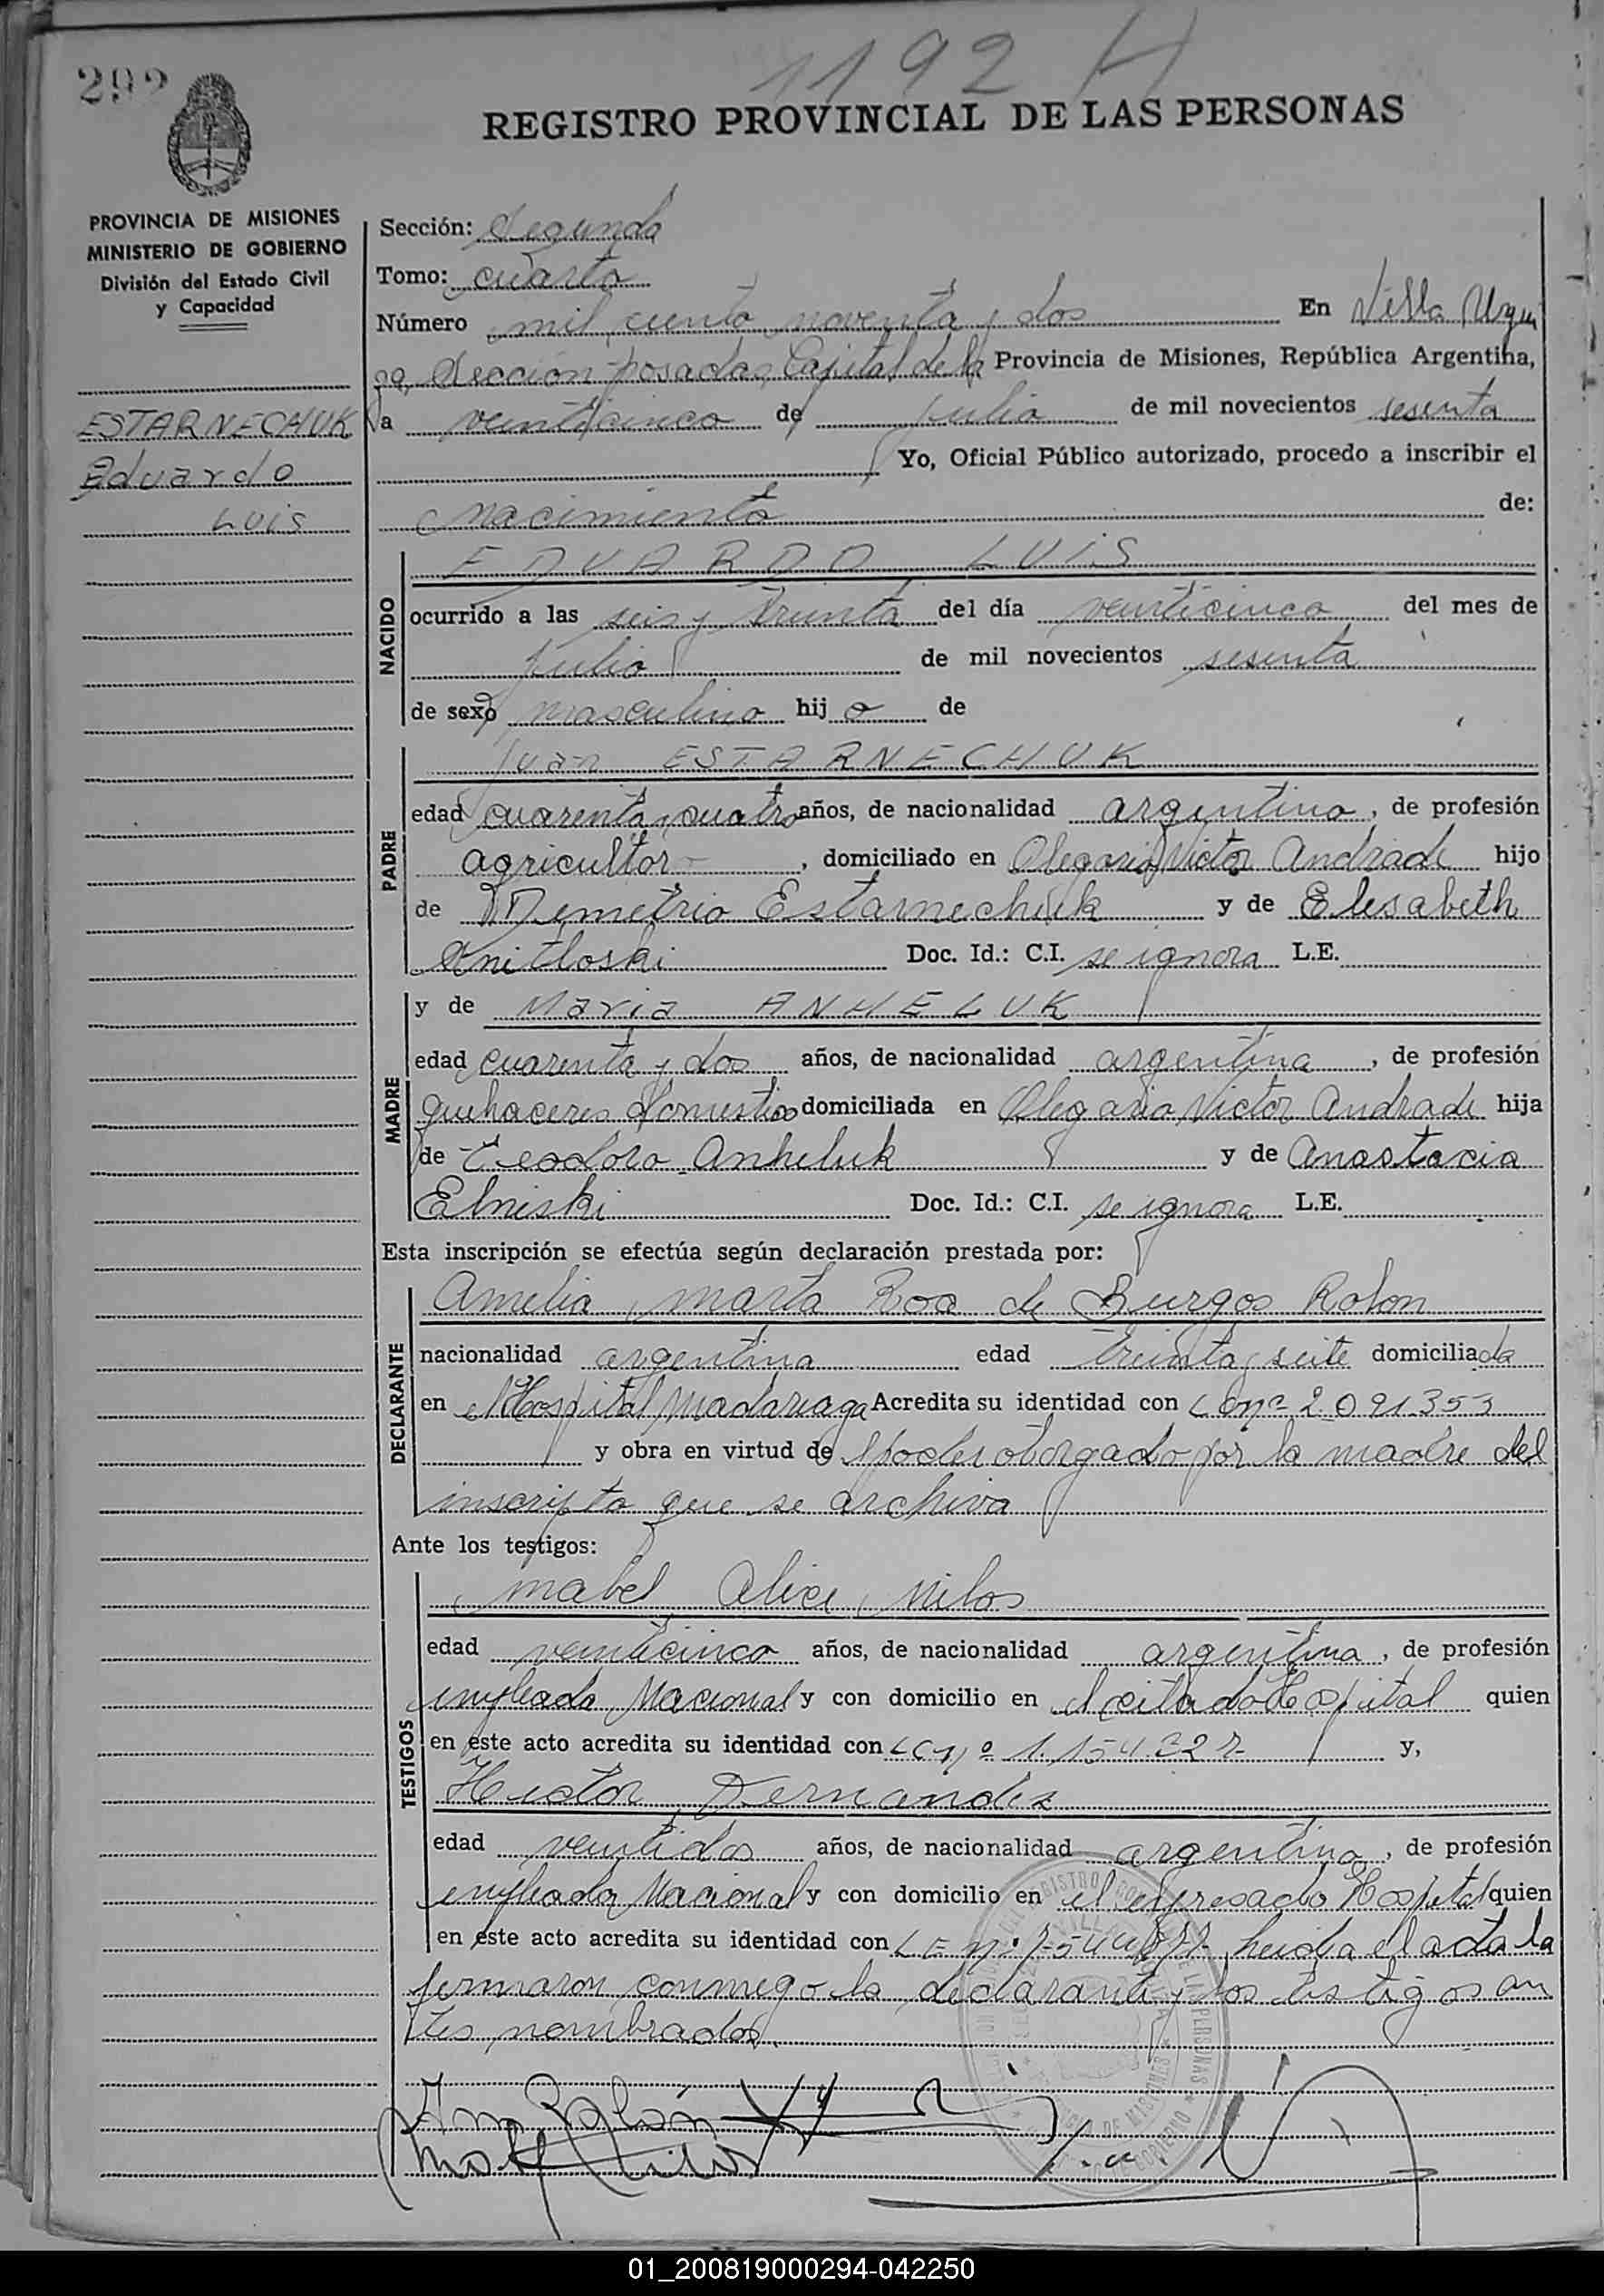 1192 H
292
REGISTRO PROVINCIAL DE LAS PERSONAS
PROVINCIA DE MISIONES
MINISTERIO DE GOBIERNO
División del Estado Civil
y Capacidad
ESTARNECHUK
Eduardo
Luis
Sección: Segunda
Tomo: cuarto
Número mil ciento noventa y dos En Villa Urqui
za, Sección posadas, Capital de la Provincia de Misiones, República Argentina,
a veinticinco de julio de mil novecientos sesenta
Yo, Oficial Público autorizado, procedo a inscribir el
nacimiento de:
NACIDO
EDUARDO LUIS
ocurrido a las seis y treinta del día veinticinco del mes de
julio de mil novecientos sesenta
de sexo masculino hijo de
PADRE
Juan ESTARNECHUK
edad cuarenta y cuatro años, de nacionalidad argentino, de profesión
agricultor, domiciliado en Olegario Victor Andrade hijo
de Demetrio Estarnechuk y de Elisabeth
Doc. Id.: C.I. se ignora L.E.
MADRE
y de Maria ANHELUK
edad cuarenta y dos años, de nacionalidad argentina, de profesión
quehaceres domesticos domiciliada en Olegario Victor Andrade hija
de Teodoro Anheluk y de Anastacia
Elniski Doc. Id.: C.I. se ignora L.E.
Esta inscripción se efectúa según declaración prestada por:
DECLARANTE
Amelia Marta Roa de Burgos Rolon
nacionalidad argentina edad treinta y seite domiciliada
en el Hospital Madariaga Acredita su identidad con LC nº 2.091.353
y obra en virtud de el poder otorgado por la madre del
inscripto que se archiva
Ante los testigos:
TESTIGOS
Mabel Alice Milos
edad veinticinco años, de nacionalidad argentina, de profesión
empleada Nacional y con domicilio en el citado Hospital quien
en este acto acredita su identidad con LC nº 1.154.322 y,
Hector Fernandez
edad veintidos años, de nacionalidad argentino, de profesión
empleado Nacional y con domicilio en el expresado Hospital quien
en este acto acredita su identidad con LE nº leida el acta la
firmaron conmigo la declarante y los testigos an
tes nombrados.
01_200819000294-042250